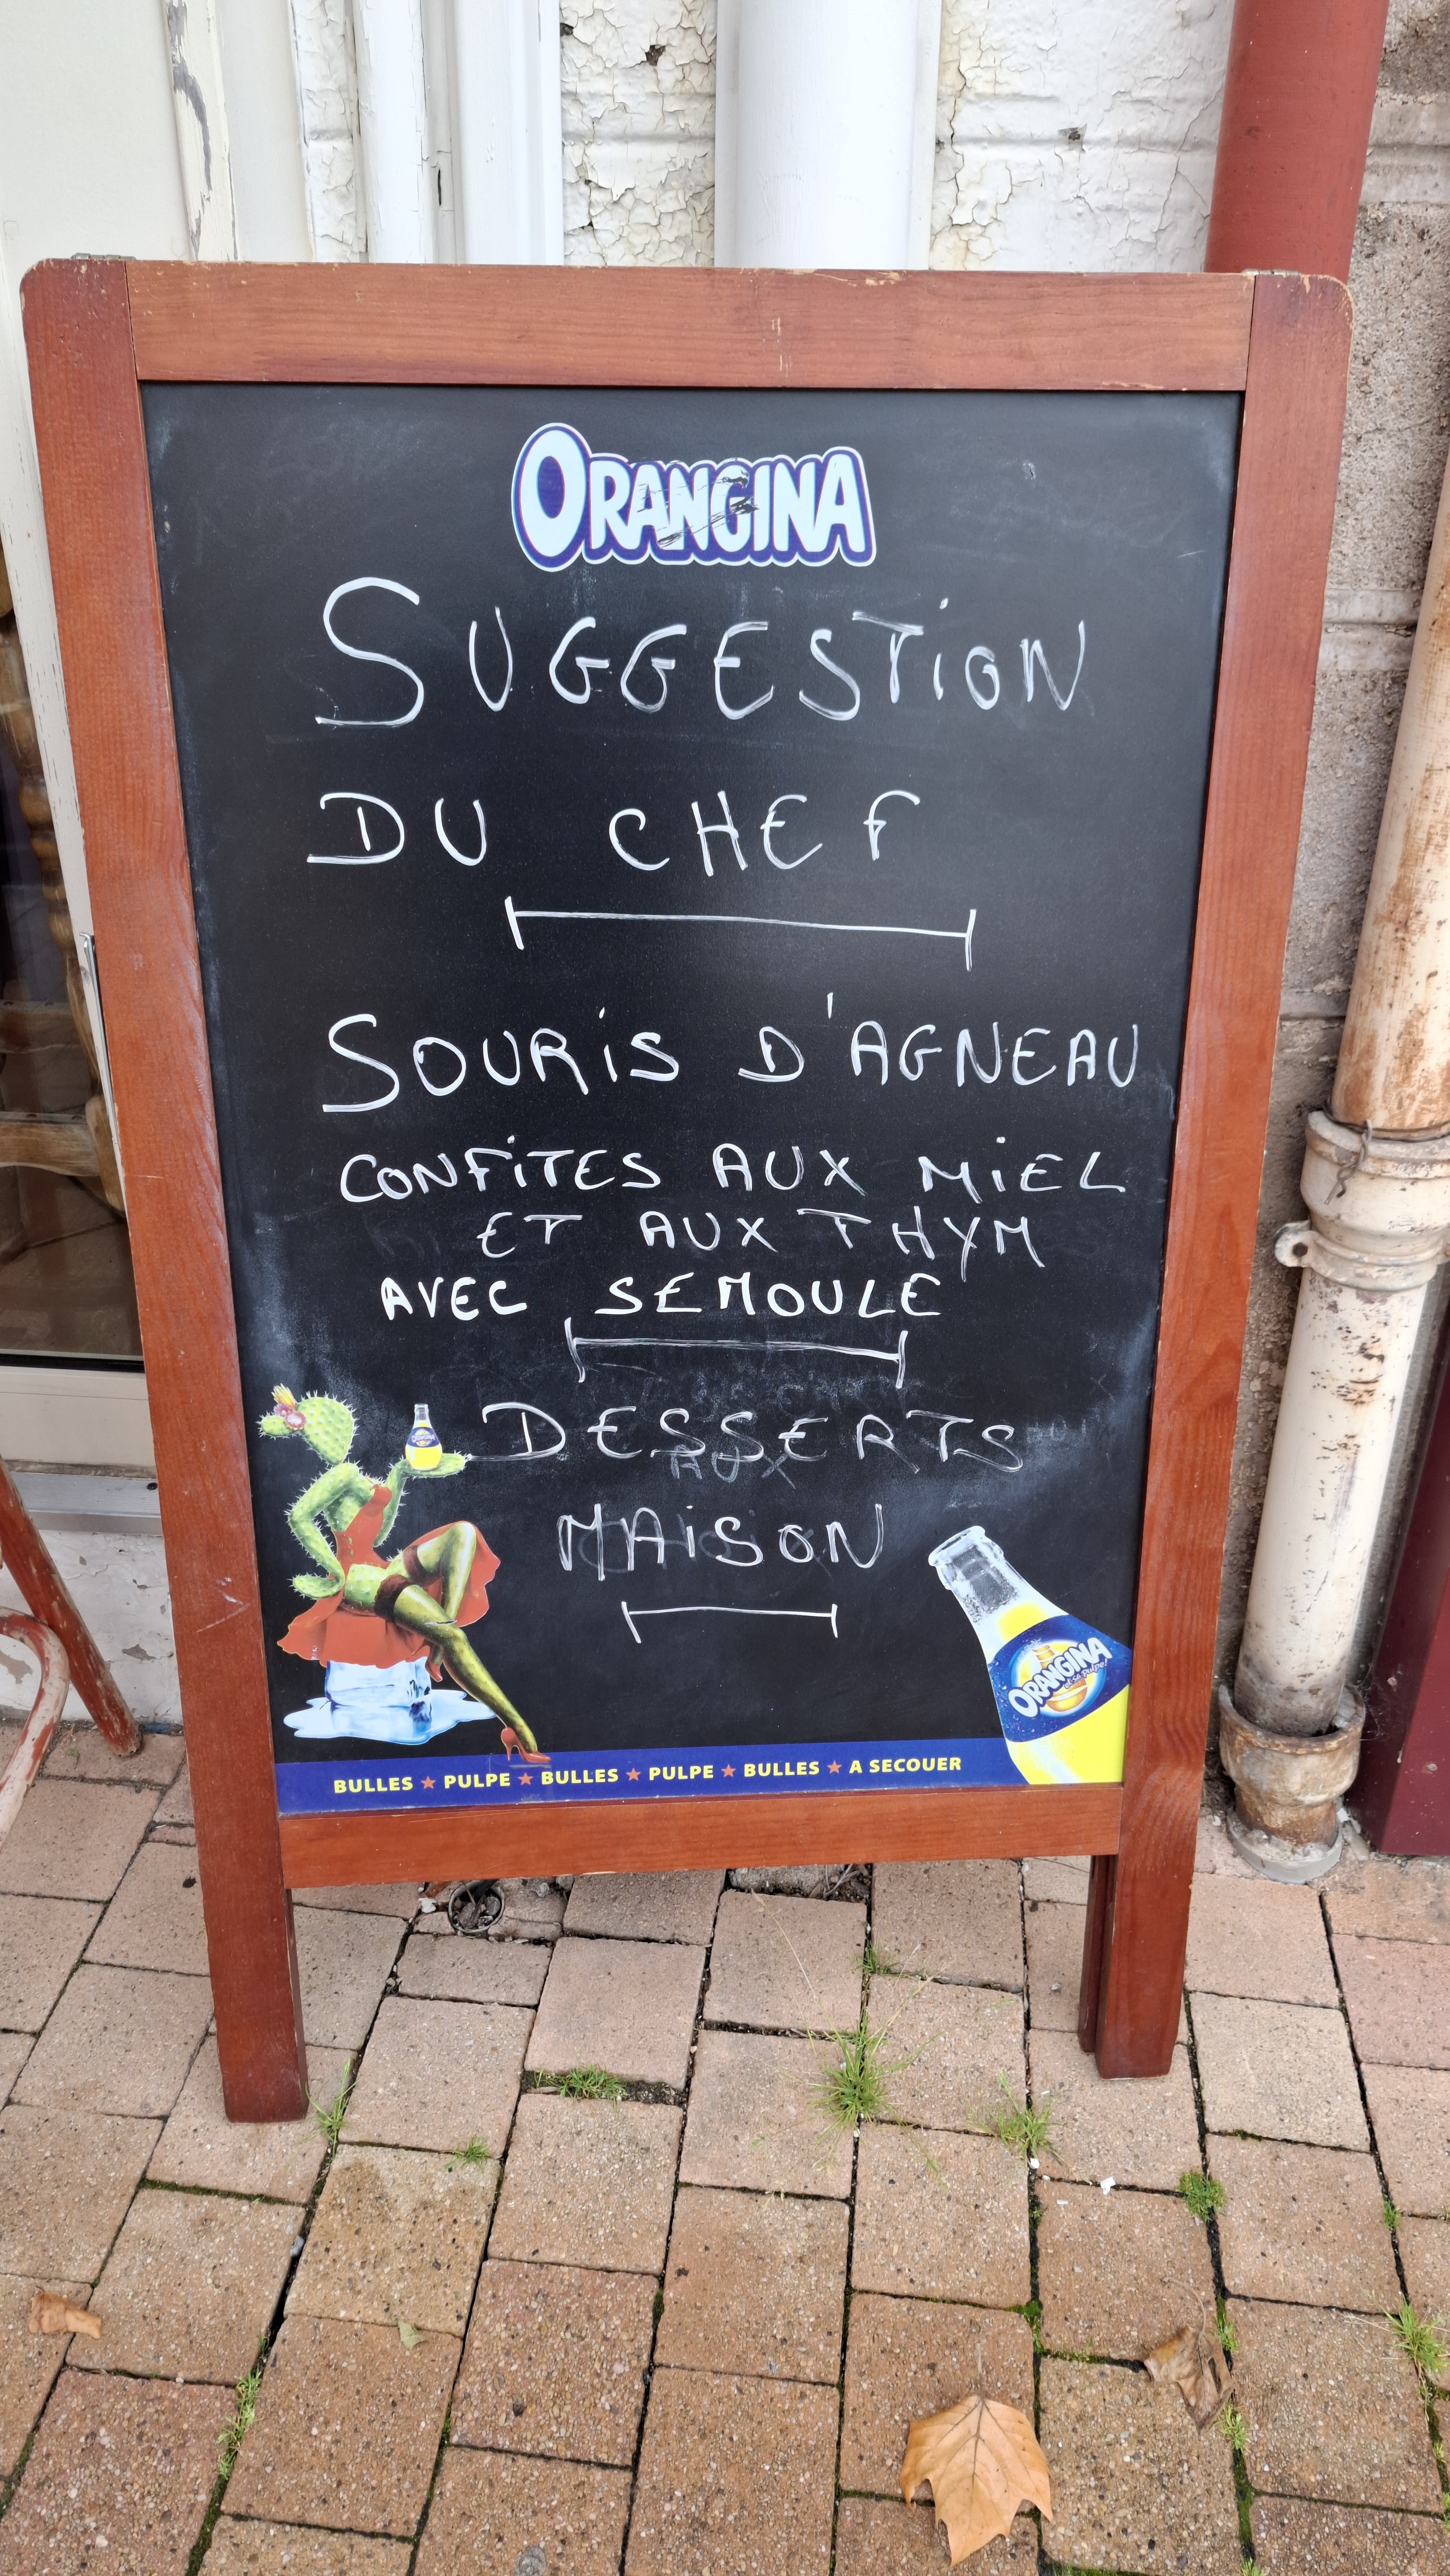 ORANGINA
SUGGESTION
DU CHEF
SOURIS D'AGNEAU
CONFITES AUX MIEL
ET AUX THYM
AVEC SEMOULE
DESSERTS
MAISON
ORANGINA
BULLES ★ PULPE ★ BULLES ★ PULPE ★ BULLES ★ A SECOUER